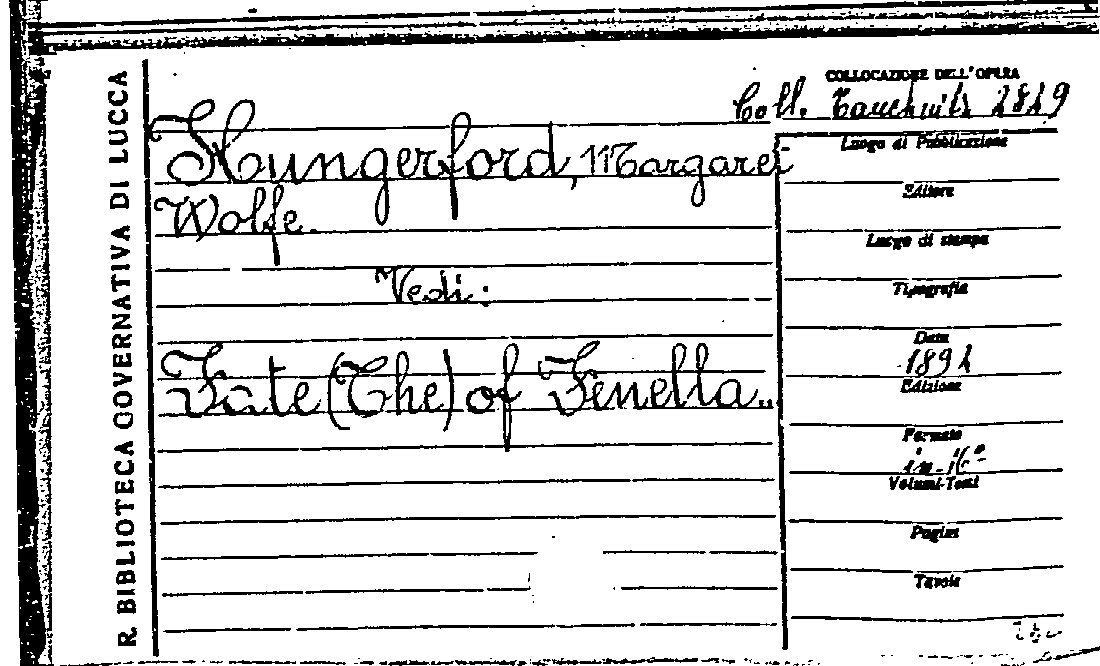 R. BIBLIOTECA GOVERNATIVA DI LUCCA
COLLOCAZIONE DELL'OPERA
Coll. Tauchnitz 2819
Hungerford, Margaret
Wolfe.
Vedi:
Fate (The) of Fenella..
Luogo di Pubblicazione
Editore
Luogo di stampa
Tipografia
Data
1892
Edizione
Formato
in-16°
Volumi-Tomi
Pagine
Tavole